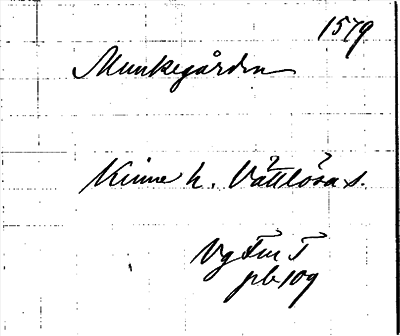 1579
Munkegården
Kinne h. Vättlösa s.
Vg Fm I
pb 109